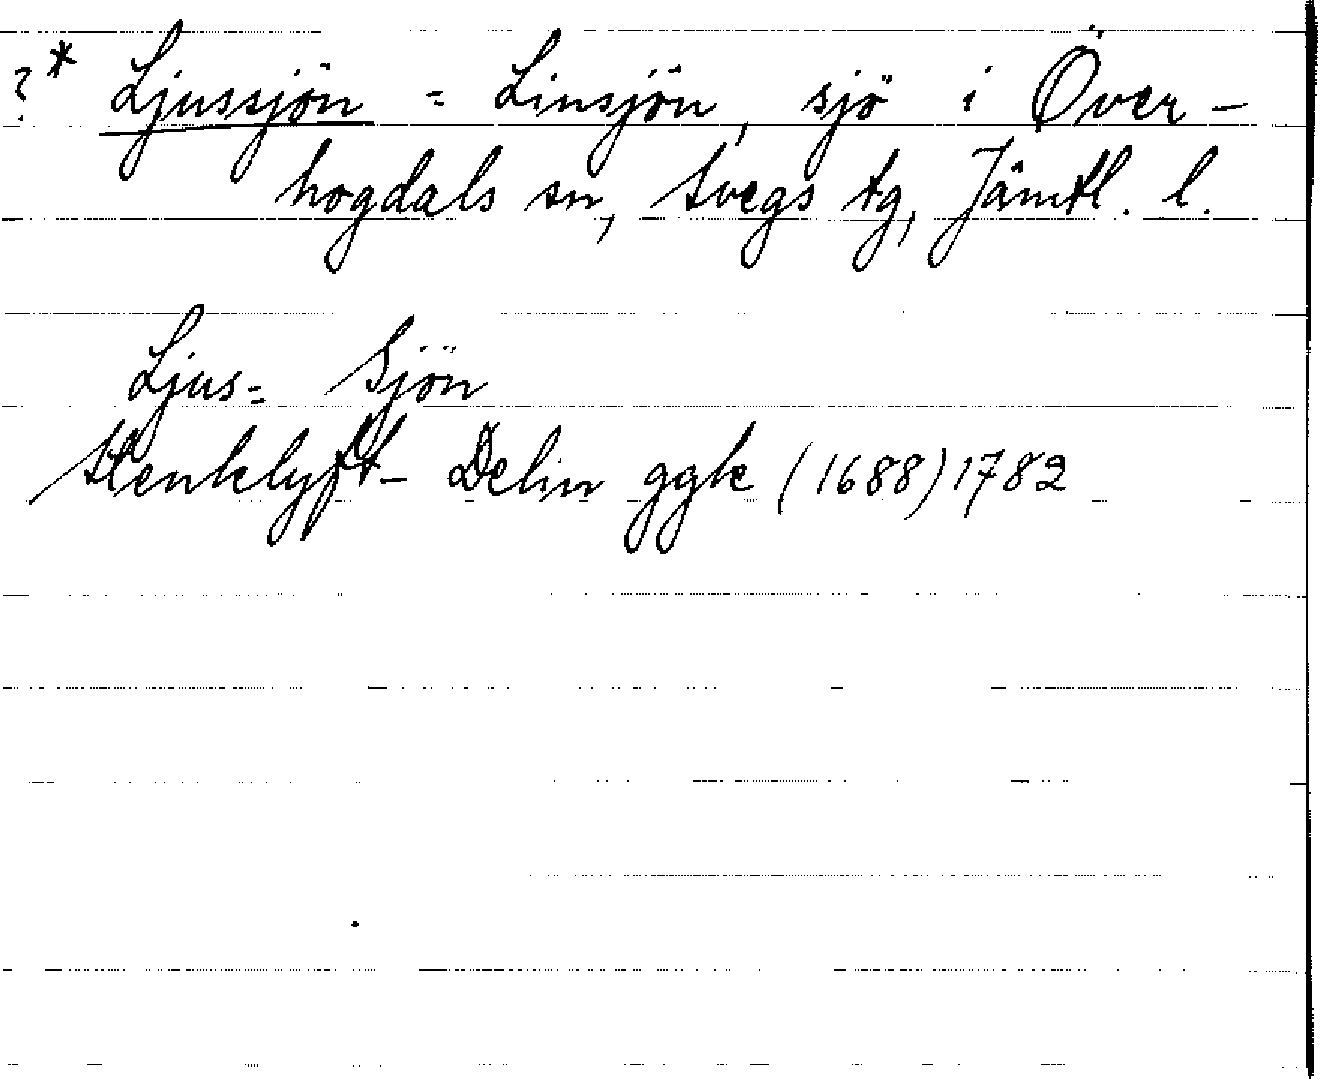 ?* Ljussjön = Linsjön, sjö i Över-
hogdals sn, Svegs tg, Jämtl. l.
Ljus= Sjön
Stenklyft- Delin ggk (1688) 1782